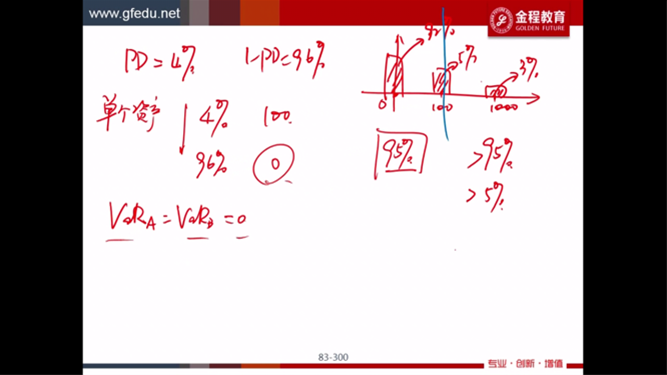 www.gfedu.net
金程教育
GOLDEN FUTURE
PD=4% 1-PD=96%
92%
5%
3%
0 100 1000
单个资产 4% 100
96% 0
95% >95%
>5%
VaRA=VaRB=0
83-300
专业·创新·增值